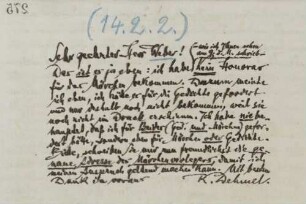 215
(14.2.2.)
Sehr geehrter Herr Weber! (– wie ich Ihnen schon am schrieb –
Das ist es ja eben: ich habe kein Honorar
für das Märchen bekommen. Darum meinte
ich eben, ich hätte es für die Gedichte gefordert
und nur deshalb noch nicht bekommen, weil sie
noch nicht im Druck erschienen. Ich habe nie be-
hauptet, daß ich für Beides (Ged. und Märchen) gefor-
dert hätte, sondern nur für Märchen oder Gedichte.
Bitte, schreiben Sie mir nun freundlichst die ge-
naue Adresse des Märchenverlegers, damit ich
meinen Anspruch geltend machen kann. Mit bestem
Dank im voraus
R. Dehmel.